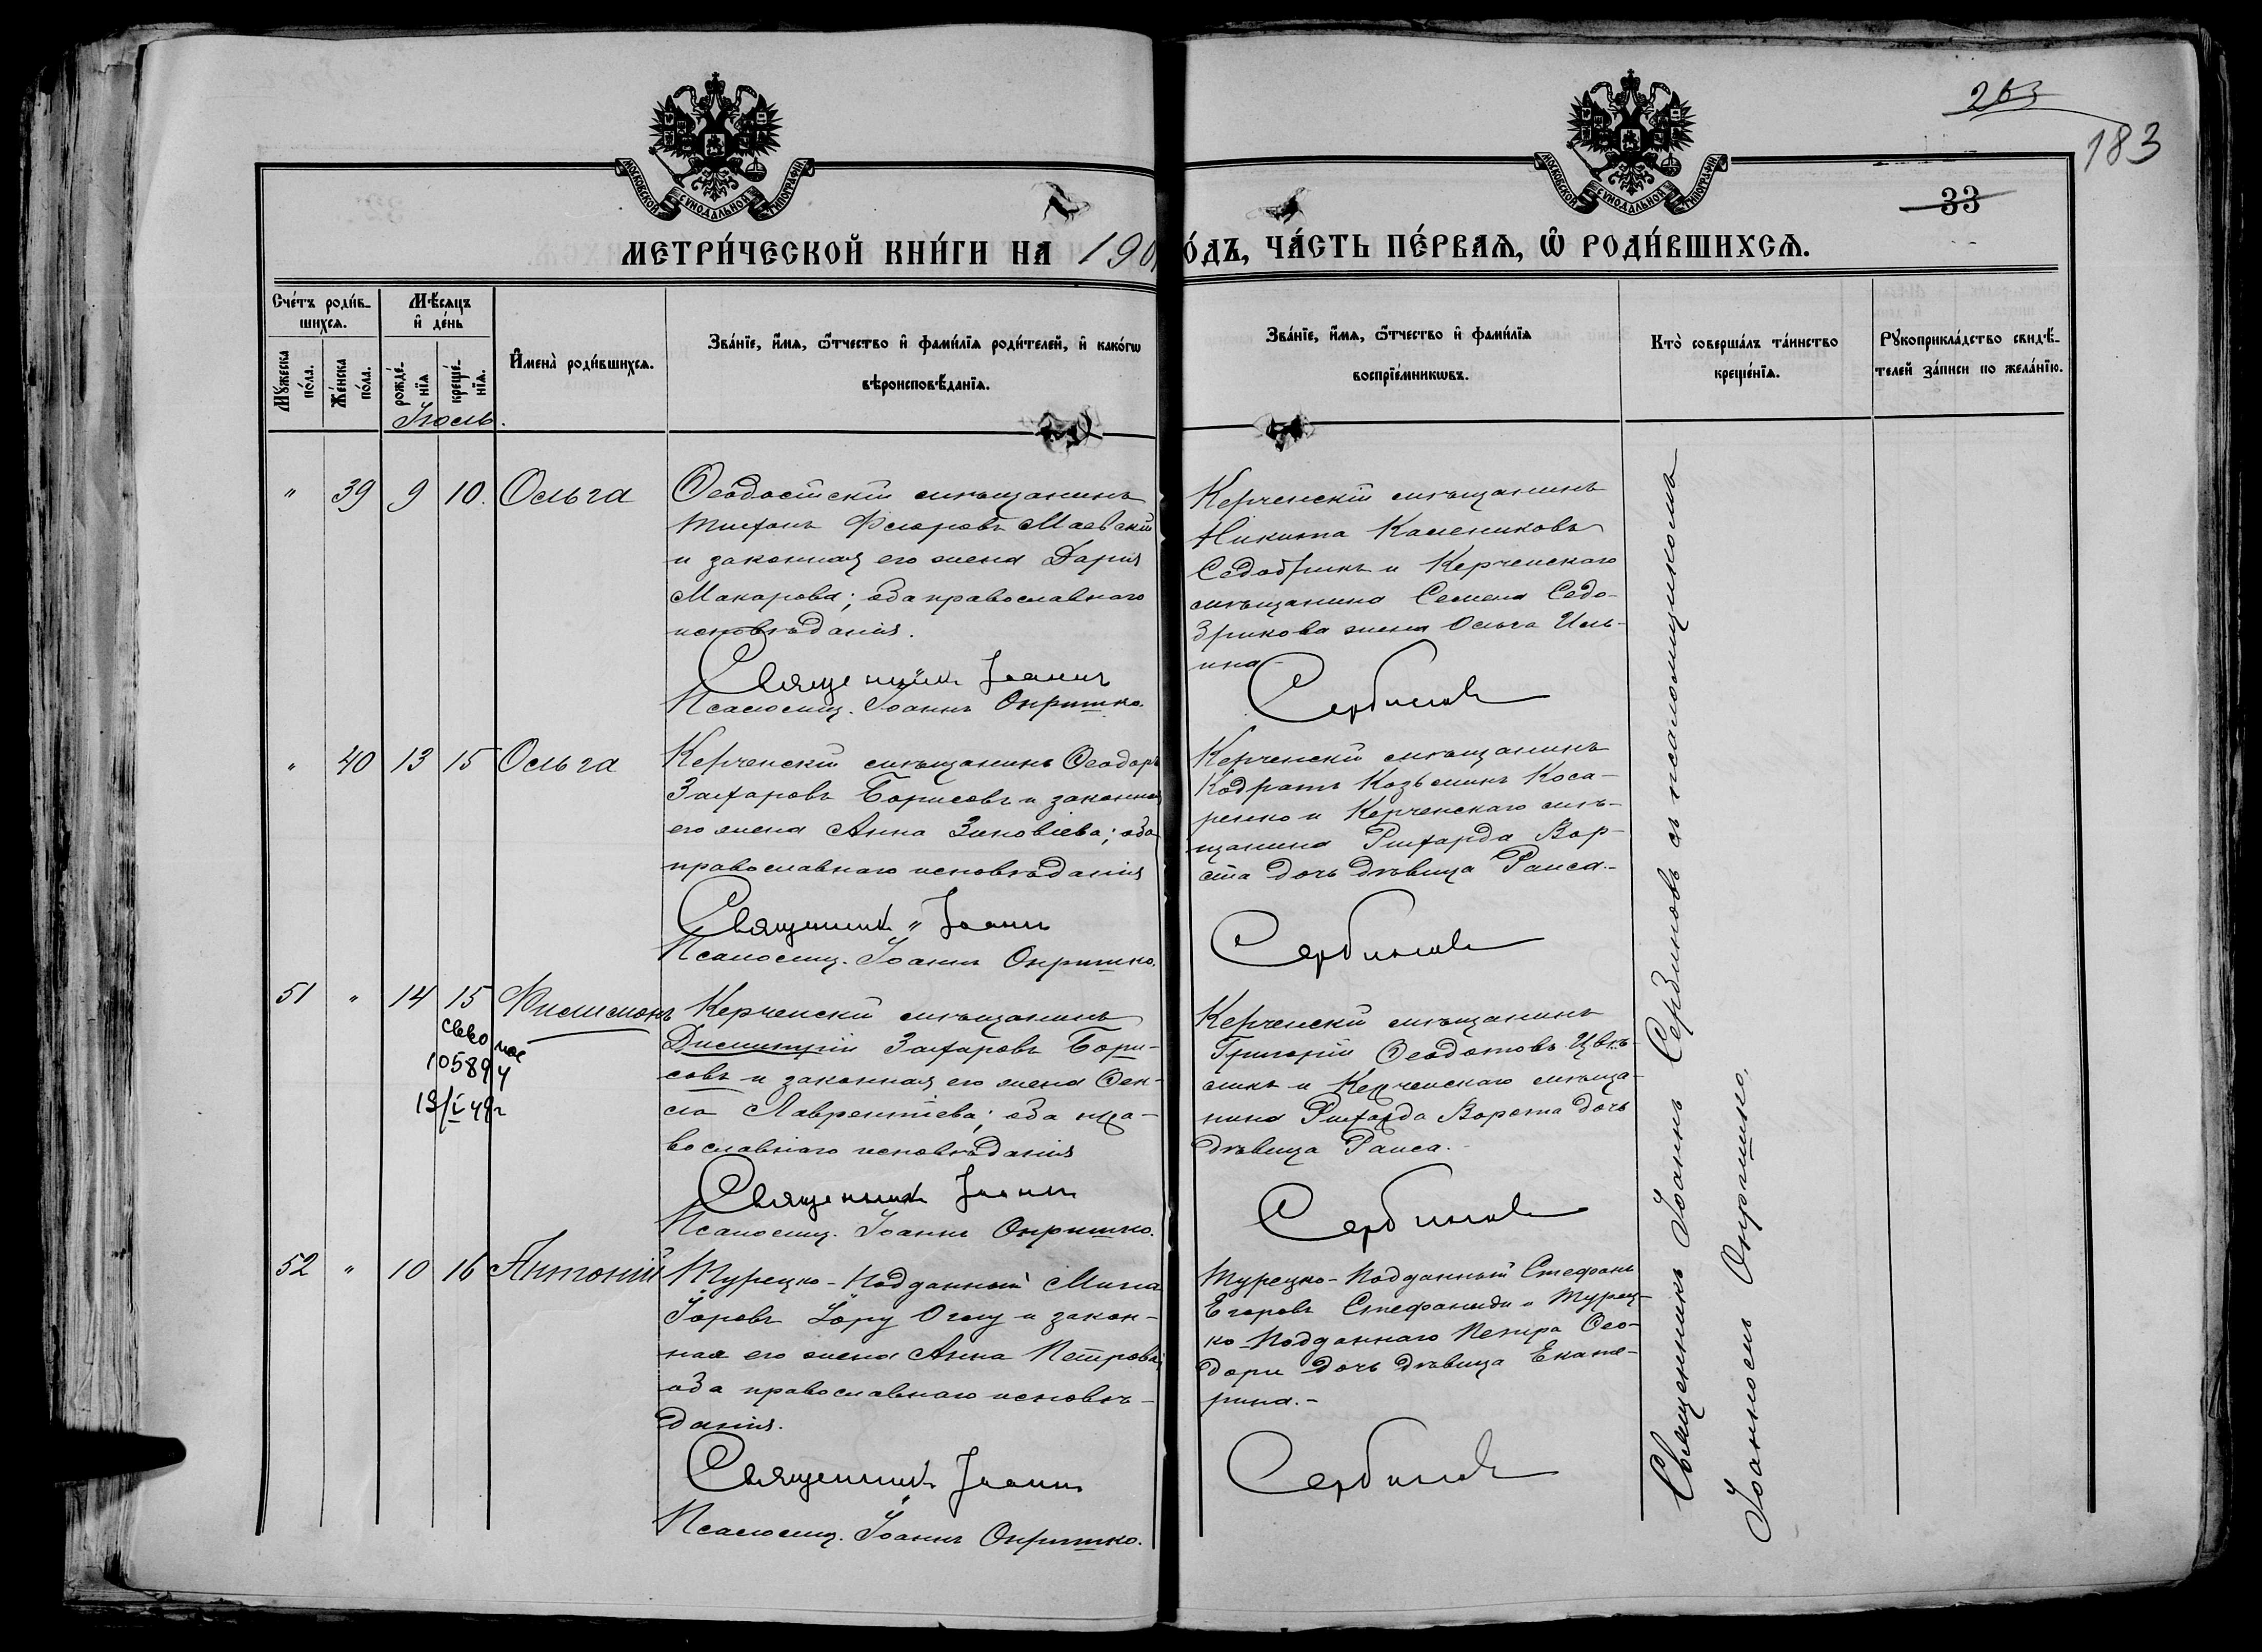 263
183
33
МОСКОВСКОЙ СѴНОДАЛЬНОЙ ТИПОГРАФІИ
МОСКОВСКОЙ СѴНОДАЛЬНОЙ ТИПОГРАФІИ
МЕТРИ́ЧЕСКОЙ КНИ́ГИ НА 190
О́ДЪ, ЧА́СТЬ ПЕ́РВАѦ, Ѽ РОДИ́ВШИХСѦ.
Сче́тъ роди́в-
шихсѧ.
Мѣ́сѧцъ
и҆ де́нь
Мꙋ́жеска
по́ла.
Же́нска
по́ла.
рожде́-
нїѧ
креще́-
нїѧ.
И҆мена̀ роди́вшихсѧ.
Зва́нїе, и҆́мѧ, ѻ҆́тчество и҆ фами́лїѧ роди́телей, и҆ како́гѡ
вѣроисповѣ́данїѧ.
Зва́нїе, и҆́мѧ, ѻ҆́тчество и҆ фами́лїѧ
воспрїе́мникѡвъ.
Кто̀ соверша́лъ та́инство
креще́нїѧ.
Рꙋкоприкла́дство свидѣ́-
телей за́писи по жела́нїю.
Іюль.
" 39 9 10. Ольга
Ѳеодосійскій мѣщанинъ
Тихонъ Флоровъ Маевскій
и законная его жена Дарія
Макарова; оба православнаго
исповѣданія.
Священникъ Іоаннъ
Псаломщ. Іоаннъ Опришко.
Керченскій мѣщанинъ
Никита
и Керченскаго
мѣщанина Семена Седо-
жена Ольга Иль-
ина-
Сербиновъ
" 40 13 15 Ольга
Керченскій мѣщанинъ Ѳеодоръ
Захаровъ Борисовъ и законная
его жена Анна Зиновіева; оба
православнаго исповѣданія
Священникъ Іоаннъ
Псаломщ. Іоаннъ Опришко.
Керченскій мѣщанинъ
Кодратъ Козьминъ Коса-
ренко и Керченскаго мѣ-
щанина Рихарда Вор-
ста дочь дѣвица Раиса.-
Сербиновъ
51 " 14 15 Филимонъ
10589
Керченскій мѣщанинъ
Димитрій Захаровъ Бори-
совъ и законная его жена Ѳек-
ла Лаврентіева; оба пра-
вославнаго исповѣданія
Священникъ Іоаннъ
Псаломщ. Іоаннъ Опришко.
Керченскій мѣщанинъ
Григорій Ѳеодотовъ
и Керченскаго мѣща-
нина Рихарда Ворста дочь
дѣвица Раиса.-
Сербиновъ
52 " 10 16 Антоній
Турецко-Подданный Мина
Іоровъ Іору Оглу и закон-
ная его жена Анна Петрова;
оба православнаго исповѣ-
данія.
Священникъ Іоаннъ
Псаломщ. Іоаннъ Опришко.
Турецко-Подданный Стефанъ
Егоровъ Стефаниди и Турец-
ко-Подданнаго Петра Ѳео-
дори дочь дѣвица Екате-
рина.-
Сербиновъ
Священникъ Іоаннъ Сербиновъ съ псаломщикомъ
Іоанномъ Опришко.